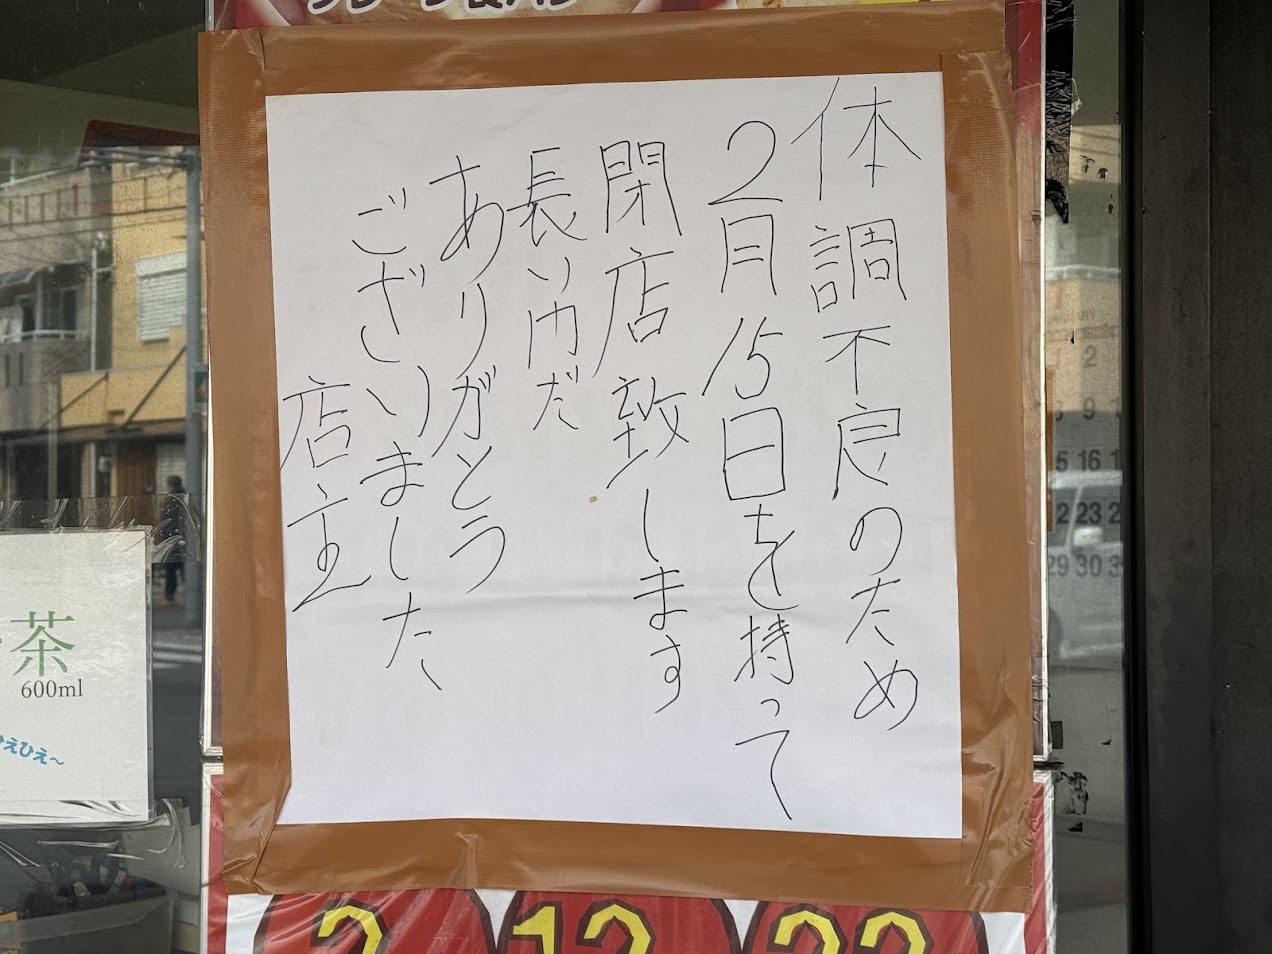 体調不良のため
2月15日を持って
閉店致します
長い内だ
ありがとう
ございました
店主
茶
600ml
えひえ～
2
12
22
2
9
16
23
29 30